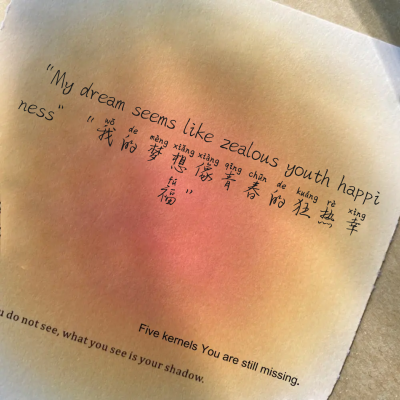 "My dream seems like zealous youth happi
ness"
wǒ de mèng xiǎng xiàng qīng chūn de kuáng rè xìng
"我的梦想像青春的狂热幸
fú
福"
Five kernels You are still missing.
u do not see, what you see is your shadow.